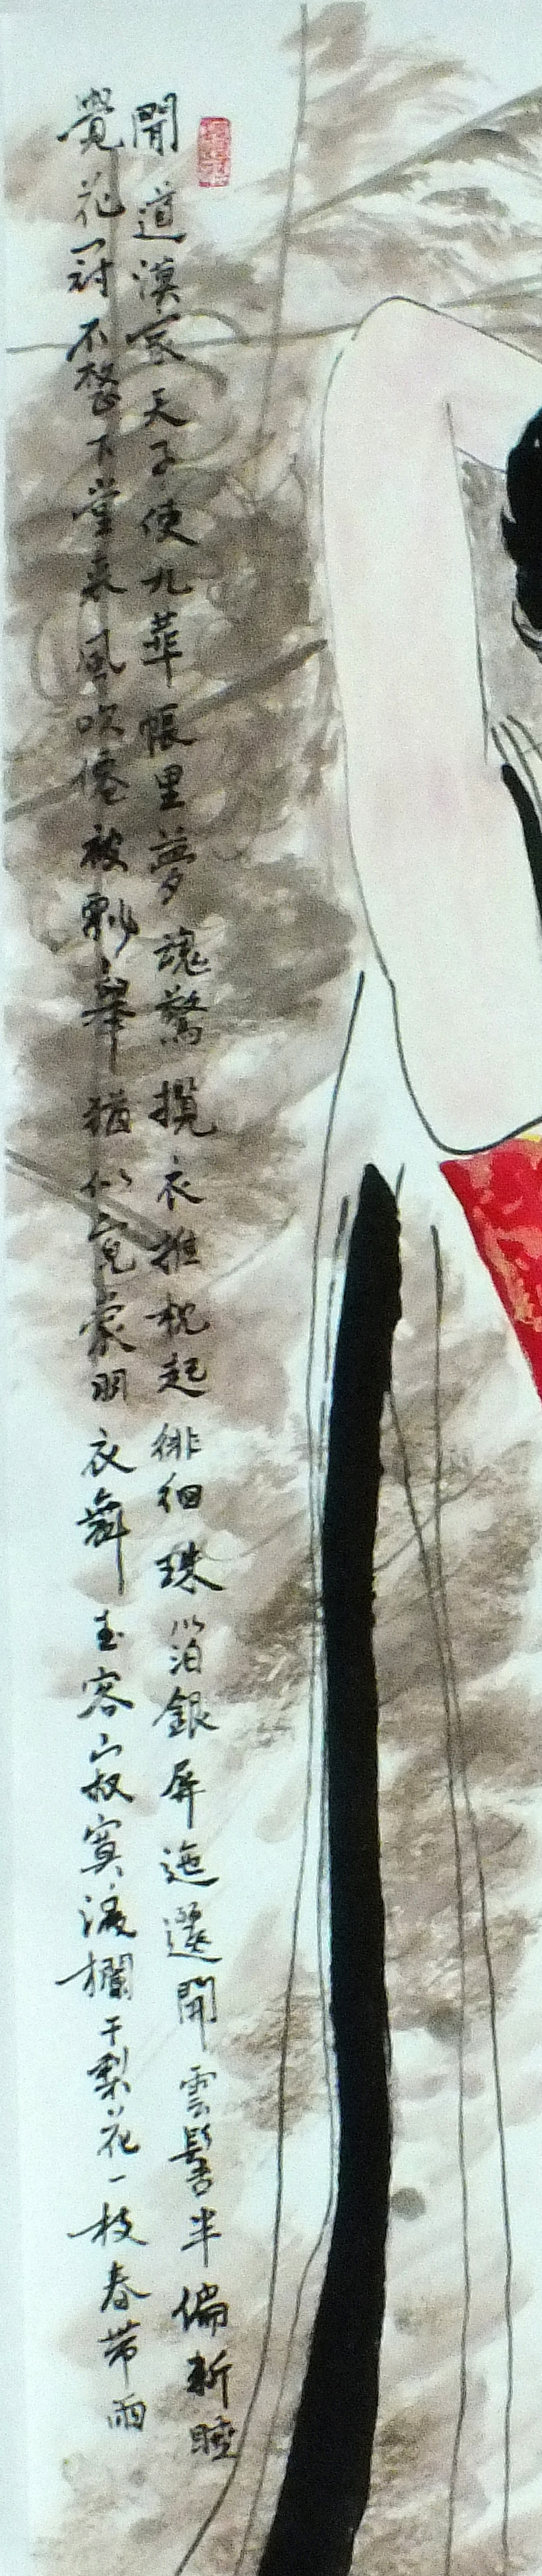 聞道漢家天子使九華帳里夢魂驚攬衣推枕起徘徊珠箔銀屏迤邐開雲髻半偏新睡
覺花冠不整下堂來風吹僊袂飄舉猶似霓裳羽衣舞玉容寂寞淚欄干梨花一枝春帶雨